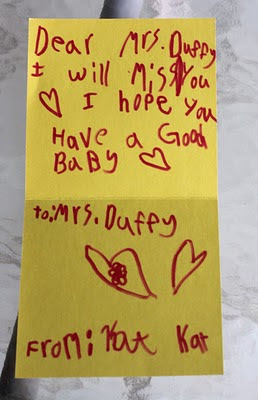 Dear Mrs. Duffy
I will Miss You
I hope you
Have a Good
BaBy
to: Mrs. Duffy
From: Kat Kat